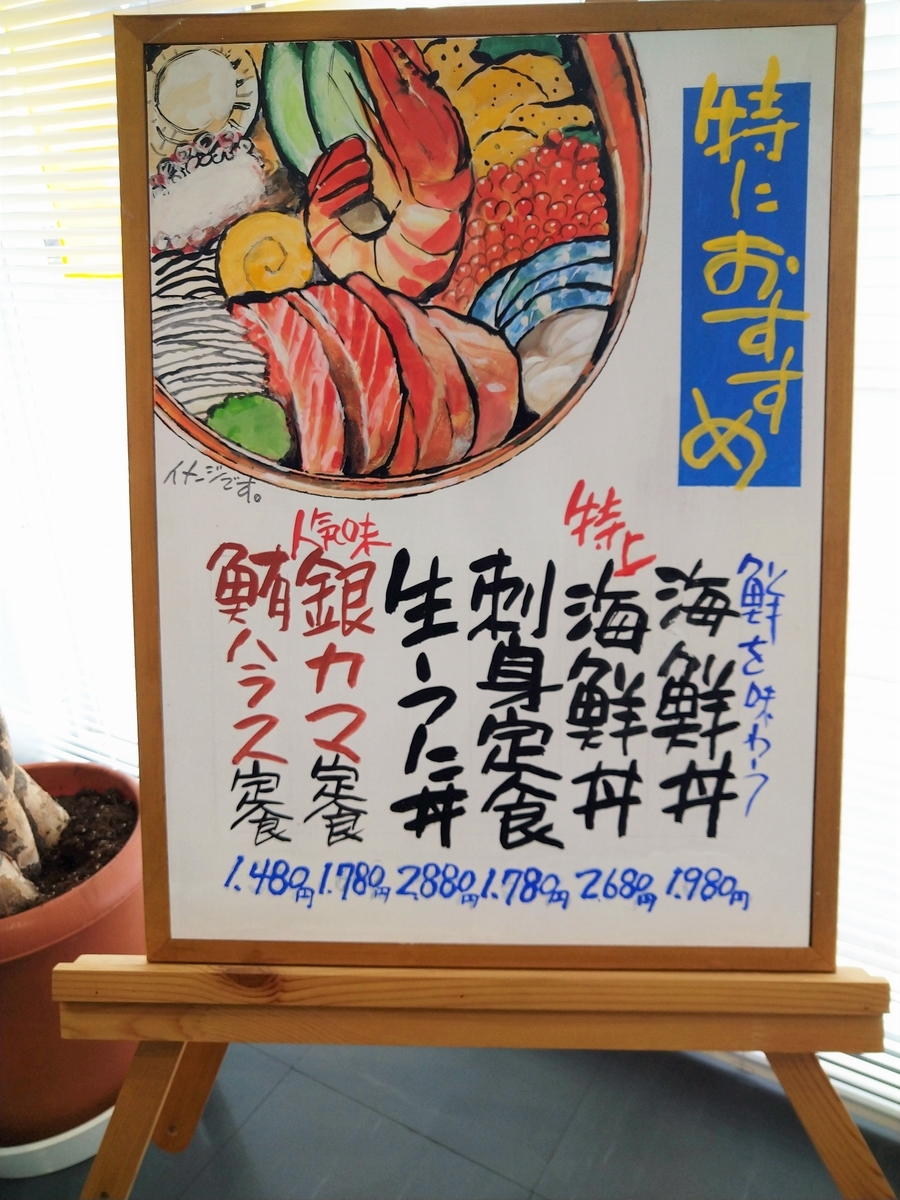 特におすすめ
鮮を味わう
海鮮丼
特上
海鮮丼
刺身定食
生うに丼
人気味
銀カマ定食
鮪ハラス定食
1.980円
2.680円
1.780円
2.880円
1.780円
1.480円
イメージです。